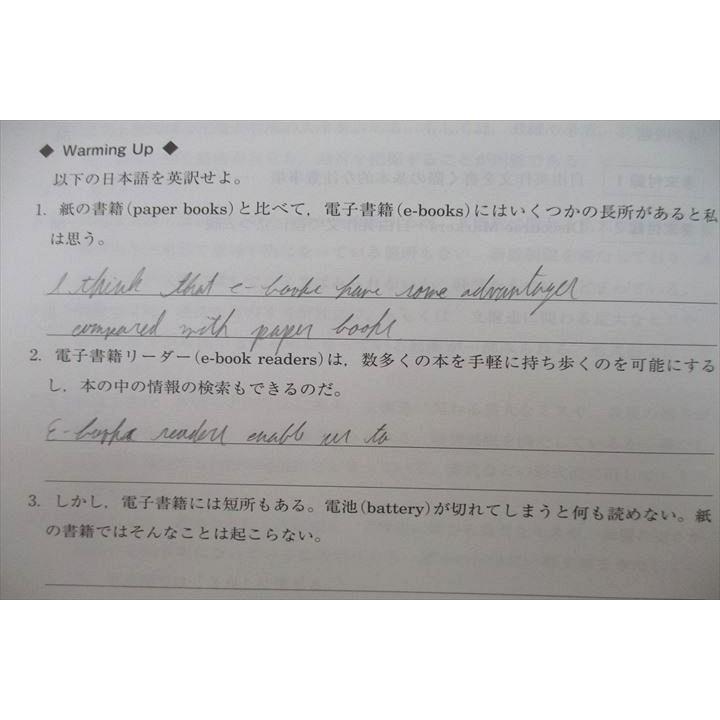 ◆ Warming Up ◆
以下の日本語を英訳せよ。
1. 紙の書籍(paper books)と比べて，電子書籍(e-books)にはいくつかの長所があると私
は思う。
I think that e-books have some advantages
compared with paper books
2. 電子書籍リーダー(e-book readers)は，数多くの本を手軽に持ち歩くのを可能にする
し，本の中の情報の検索もできるのだ。
E-books readers enable us to
3. しかし，電子書籍には短所もある。電池(battery)が切れてしまうと何も読めない。紙
の書籍ではそんなことは起こらない。